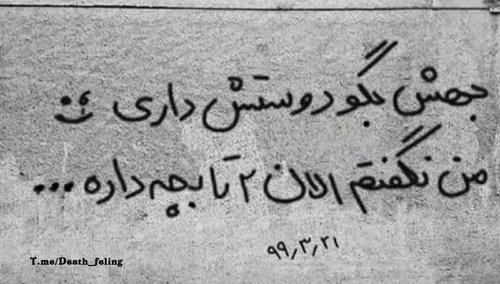 بهش بگو دوستش داری :)
من نگفتم الان ۲ تا بچه داره...
۹۹٫۳٫۲۱
T.me/Death_feling